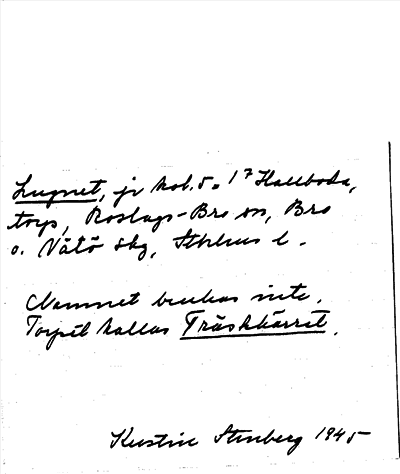 Lugnet, jr kol. 5. 1⁷ Hallboda,
torp, Roslags-Bro sn, Bro
o. Vätö skg, Sthlms l.
Namnet brukas inte.
Torpet kallas Träskkärret.
Kerstin Stenberg 1945